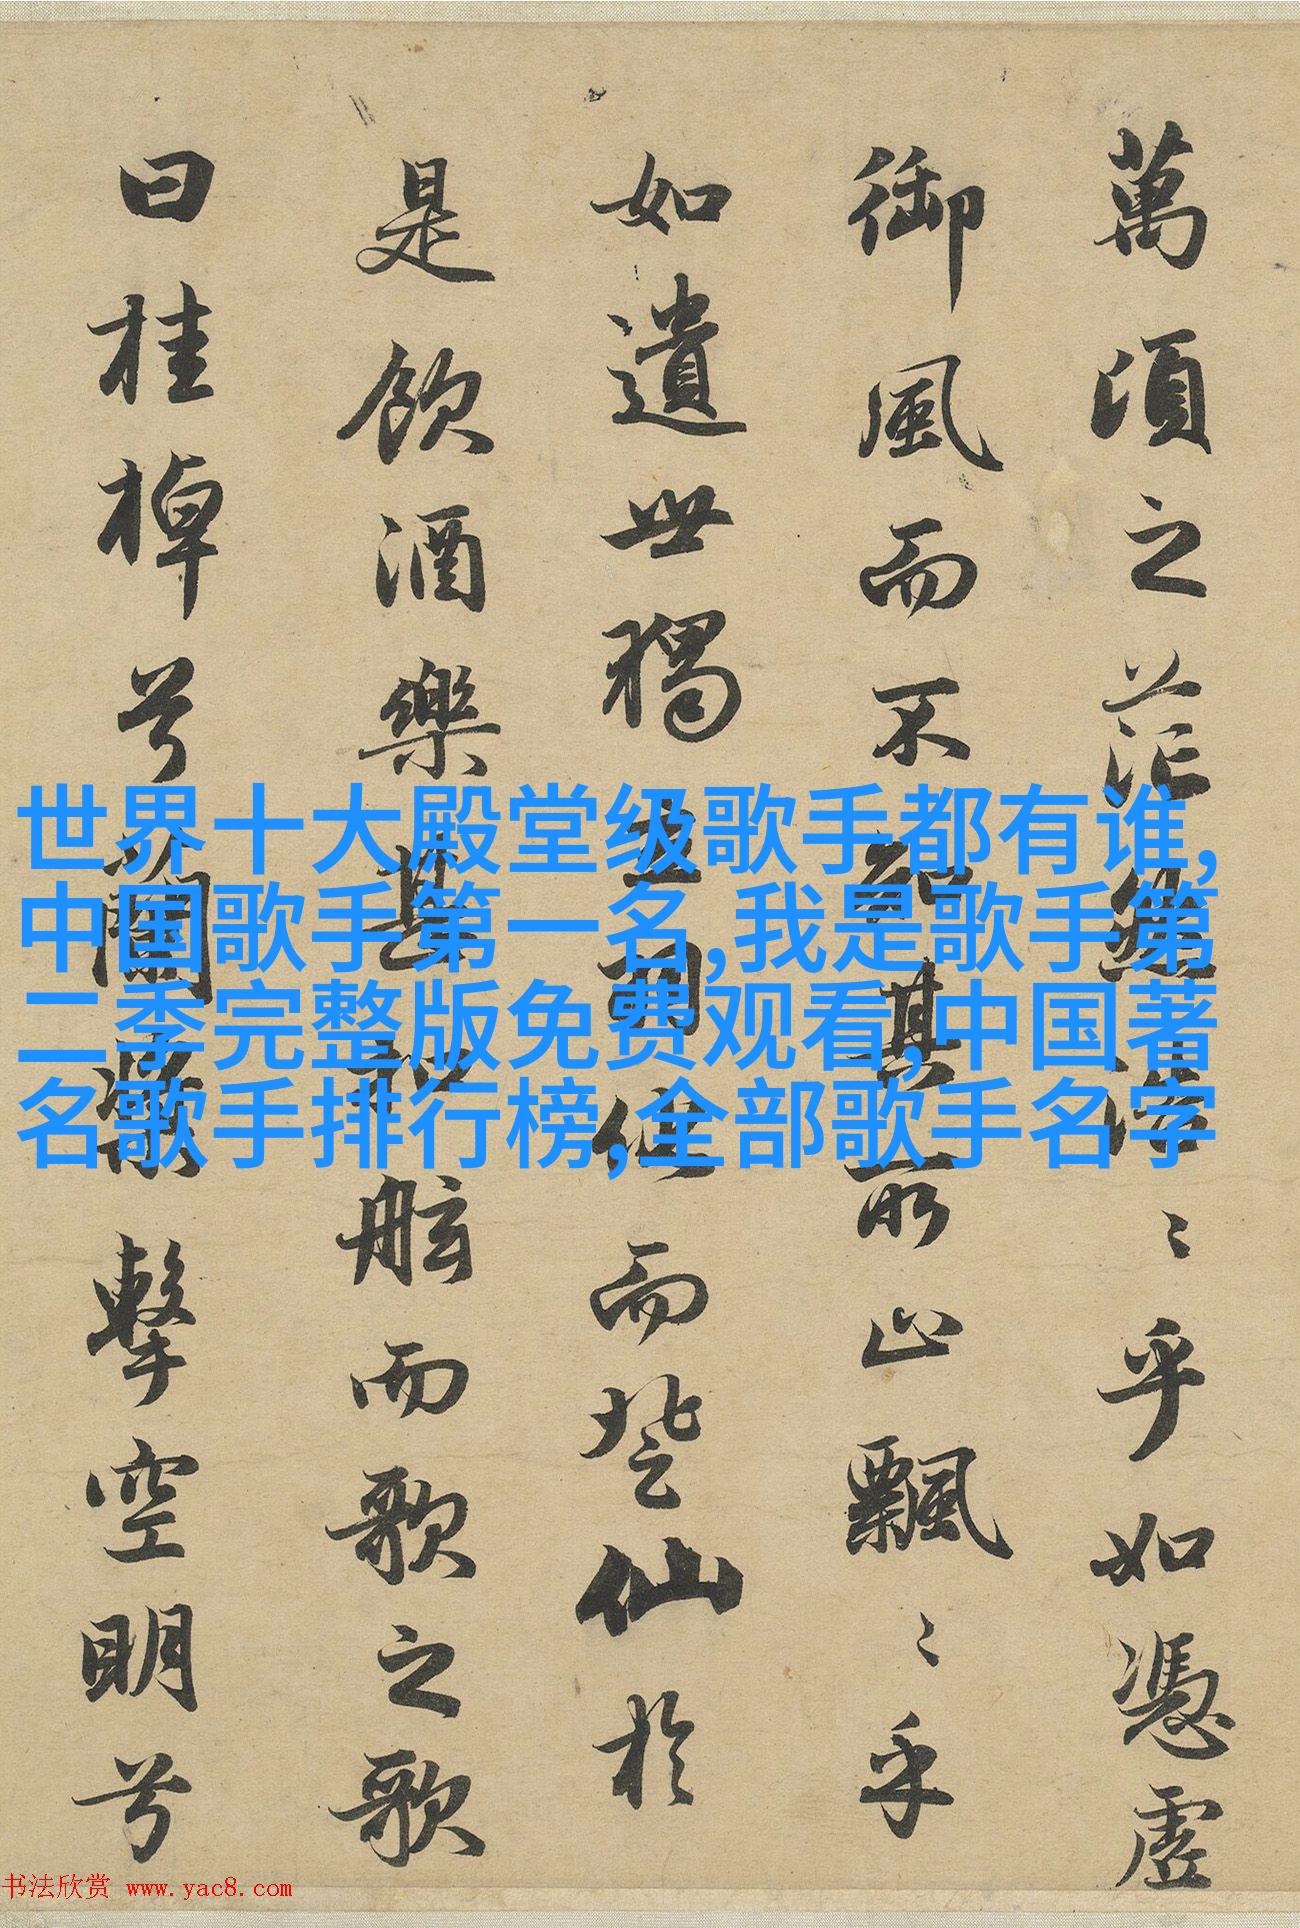 萬頃之茫然浩〻乎如憑虛
御風而不知其所止飄〻乎
如遺世獨立羽化而登仙於
是飲酒樂甚扣舷而歌之歌
曰桂棹兮蘭槳擊空明兮
世界十大殿堂级歌手都有谁,
中国歌手第一名,我是歌手第
二季完整版免费观看,中国著
名歌手排行榜,全部歌手名字
书法欣赏 www.yac8.com